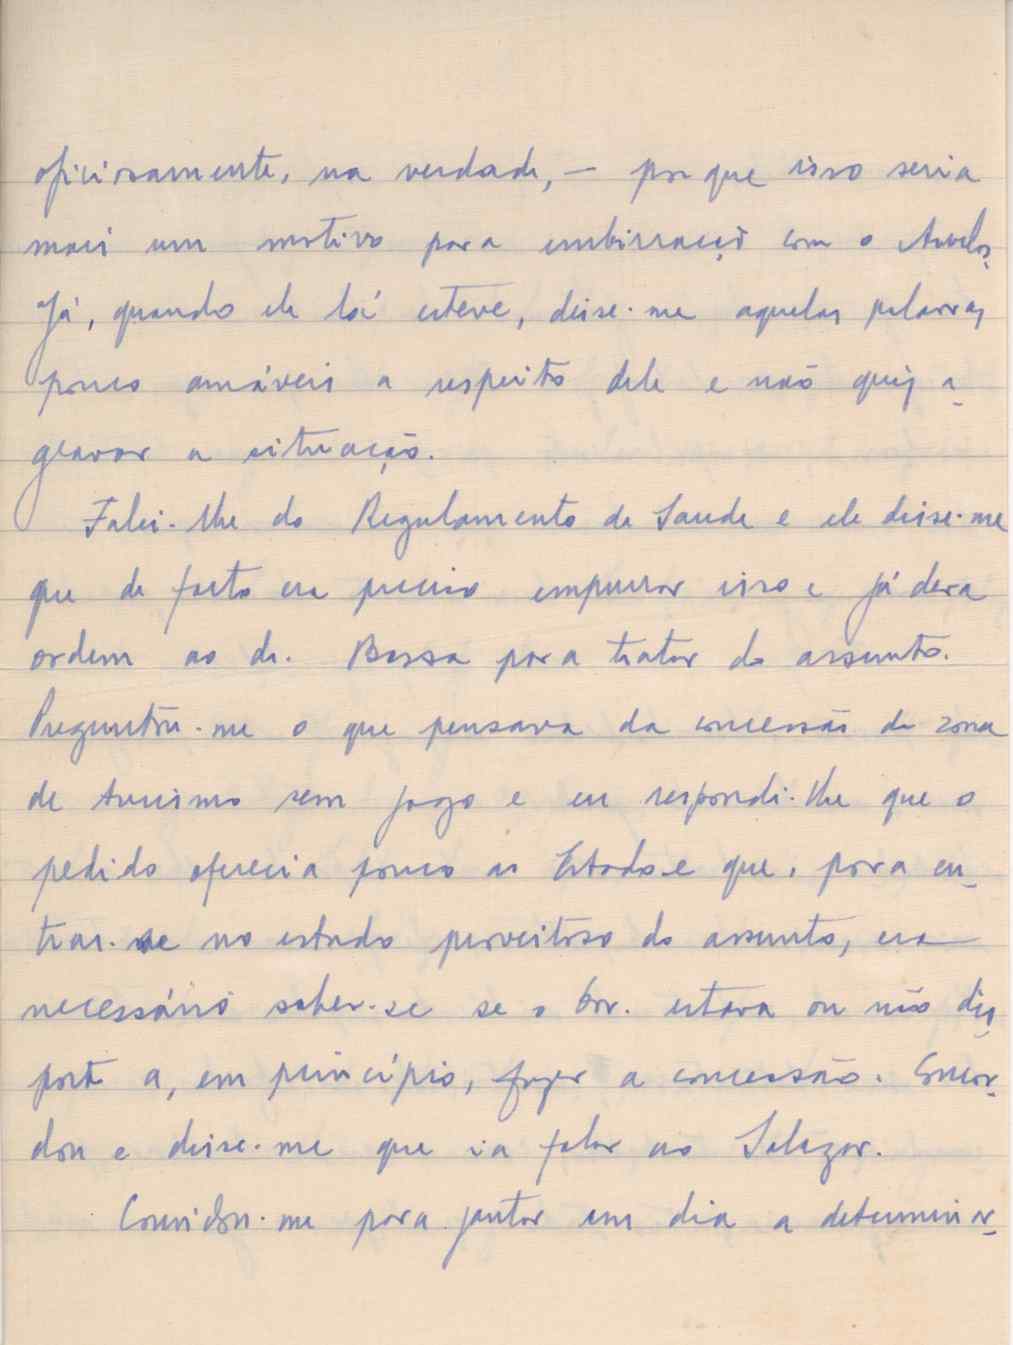 oficiosamente, na verdade, — porque isso seria
mais um motivo para embirração com o Arvelos.
Já, quando ele lá esteve, disse-me aquelas palavras
pouco amáveis a respeito dele e não quiz a-
gravar a situação.
Falei-lhe do Regulamento de Saude e ele disse-me
que de facto era preciso empurrar isso e já dera
ordem ao dr. Bossa para tratar do assunto.
Preguntou-me o que pensava da concessão de zona
de turismo sem jogo e eu respondi-lhe que o
pedido oferecia pouco ao Estado e que, para en-
trar-se no estudo proveitoso do assunto, era
necessário saber-se se o Gov. estava ou não dis-
posto a, em princípio, fazer a concessão. Concor-
dou e disse-me que ia falar ao Salazar.
Convidou-me para jantar em dia a determinar-